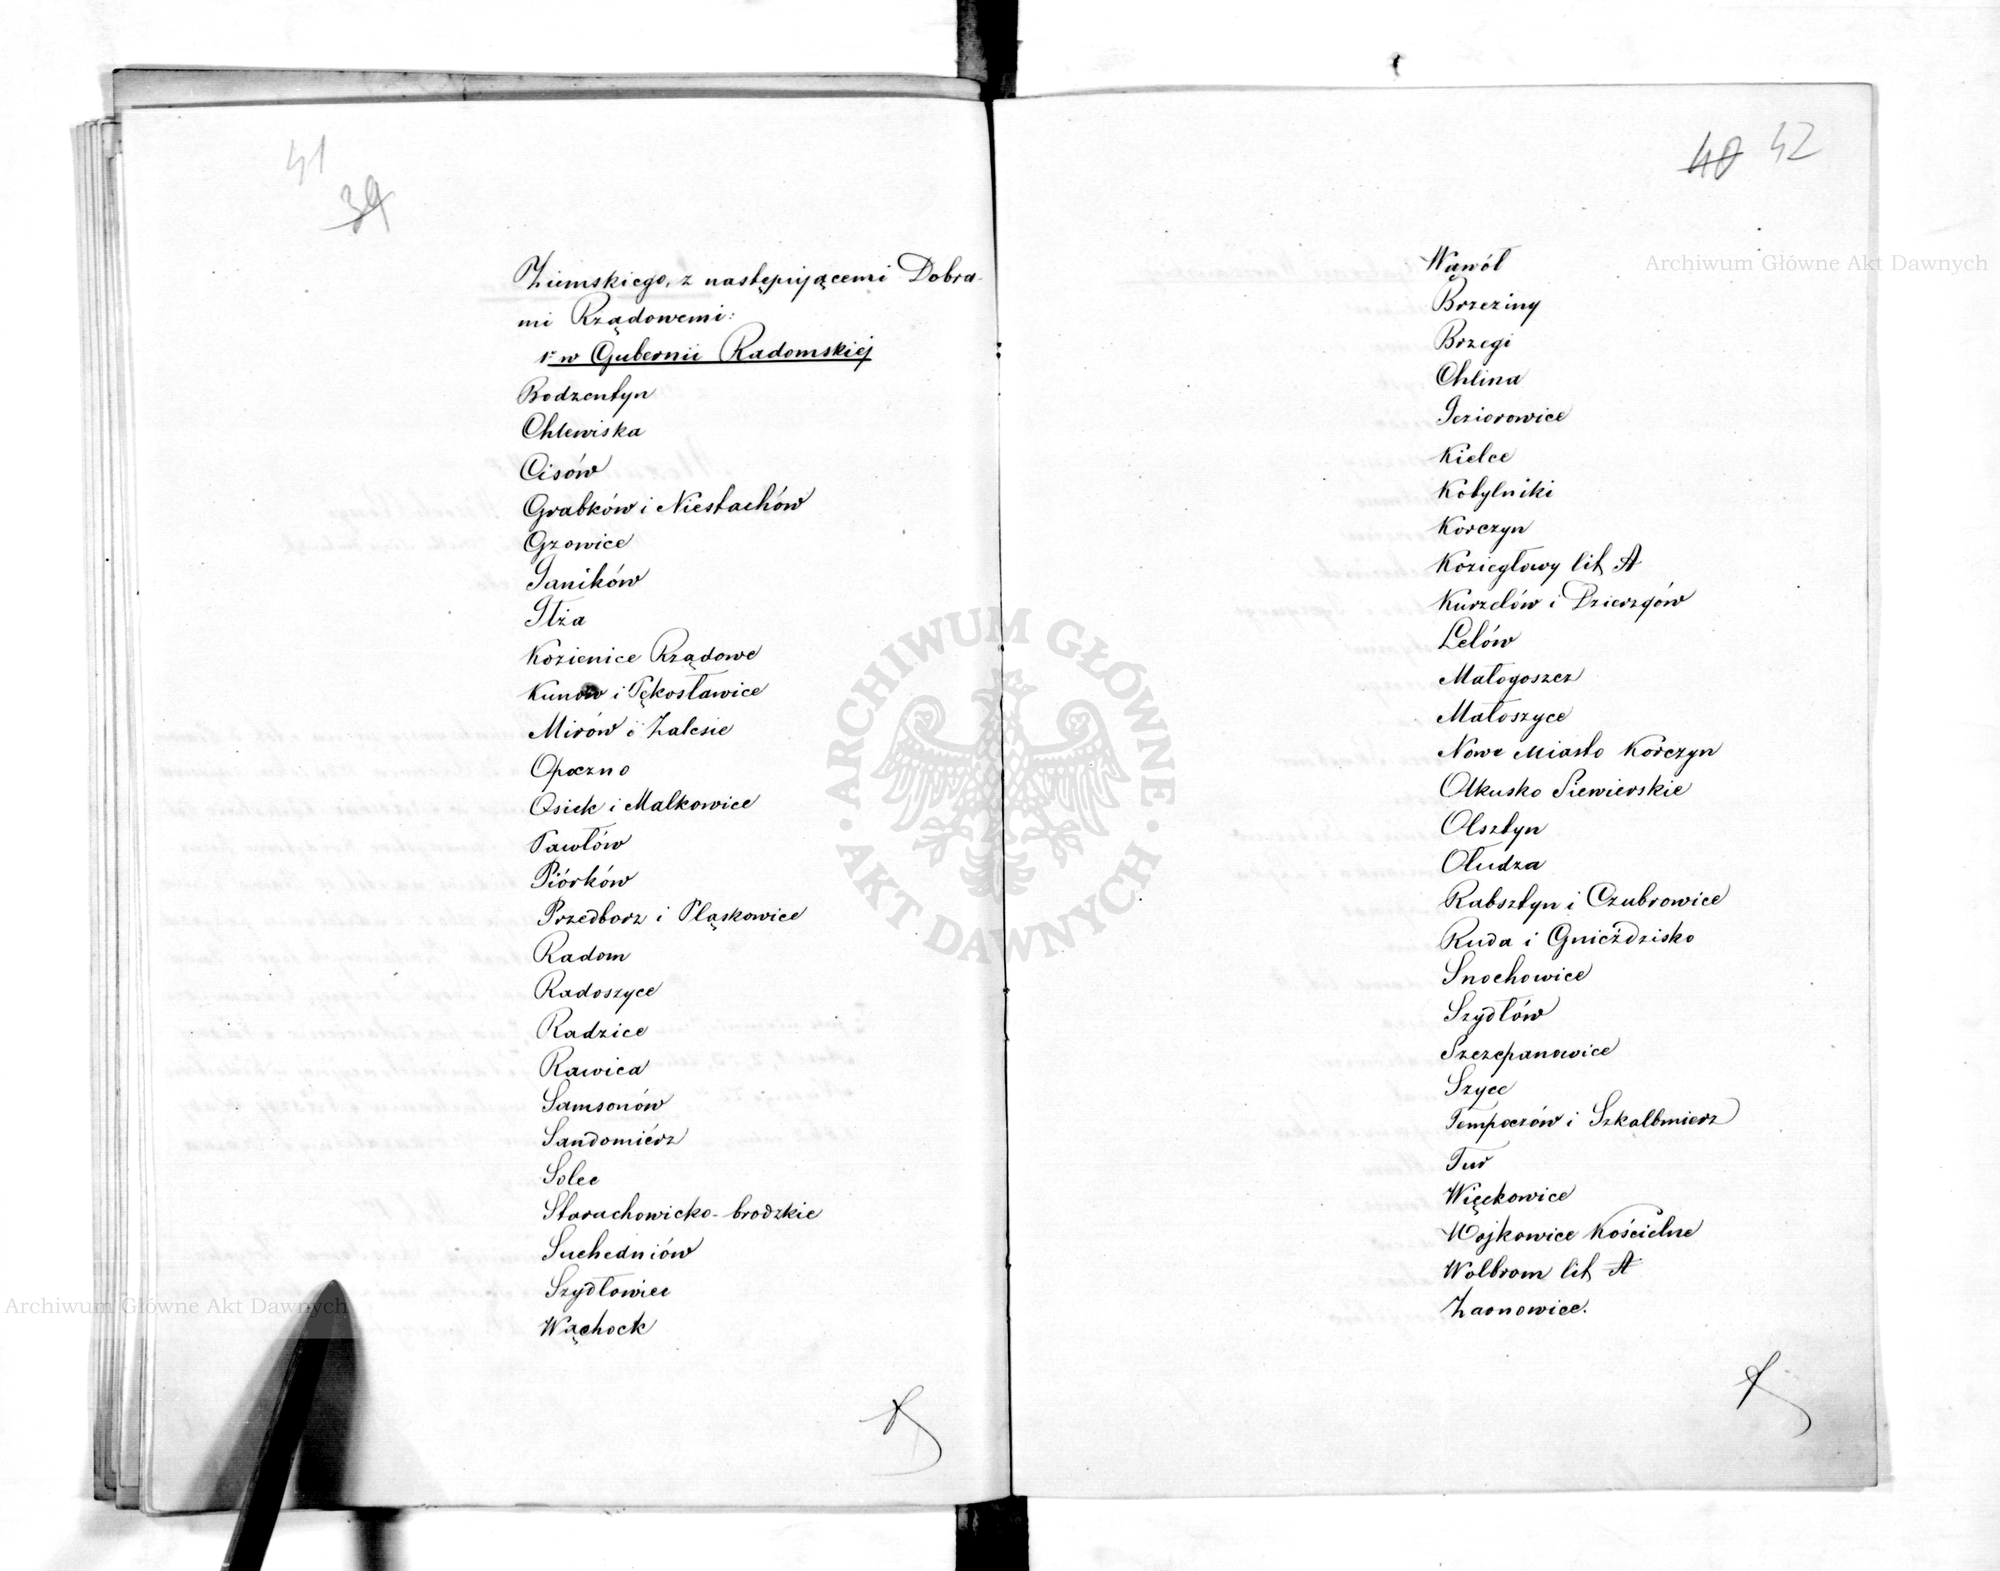 41
39
Ziemskiego, z następującemi Dobra-
mi Rządowemi:
1º w Gubernii Radomskiej
Bodzentyn
Chlewiska
Cisów
Grabków i Niestachów
Gzowice
Janików
Iłża
Kozienice Rządowe
Kunów i Pękosławice
Mirów i Zalesie
Opoczno
Osiek i Malkowice
Pawłów
Piórków
Przedborz i Pląskowice
Radom
Radoszyce
Radzice
Rawica
Samsonów
Sandomiérz
Solec
Starachowicko-brodzkie
Suchedniów
Szydłowiec
Wąchock
40 42
Wąwół
Brzeziny
Brzegi
Chlina
Jeziorowice
Kielce
Kobylniki
Korczyn
Koziegłowy lit A
Kurzelów i Dzierzgów
Lelów
Małogoszcz
Małoszyce
Nowe Miasto Korczyn
Olkusko Siewierskie
Olsztyn
Ołudza
Rabsztyn i Czubrowice
Ruda i Gnieździsko
Snochowice
Szydłów
Szczepanowice
Szyce
Tempoczów i Szkalbmierz
Tur
Więckowice
Wojkowice Kościelne
Wolbrom lit A
Żarnowice.
Archiwum Główne Akt Dawnych
Archiwum Główne Akt Dawnych
ARCHIWUM GŁÓWNE
AKT DAWNYCH